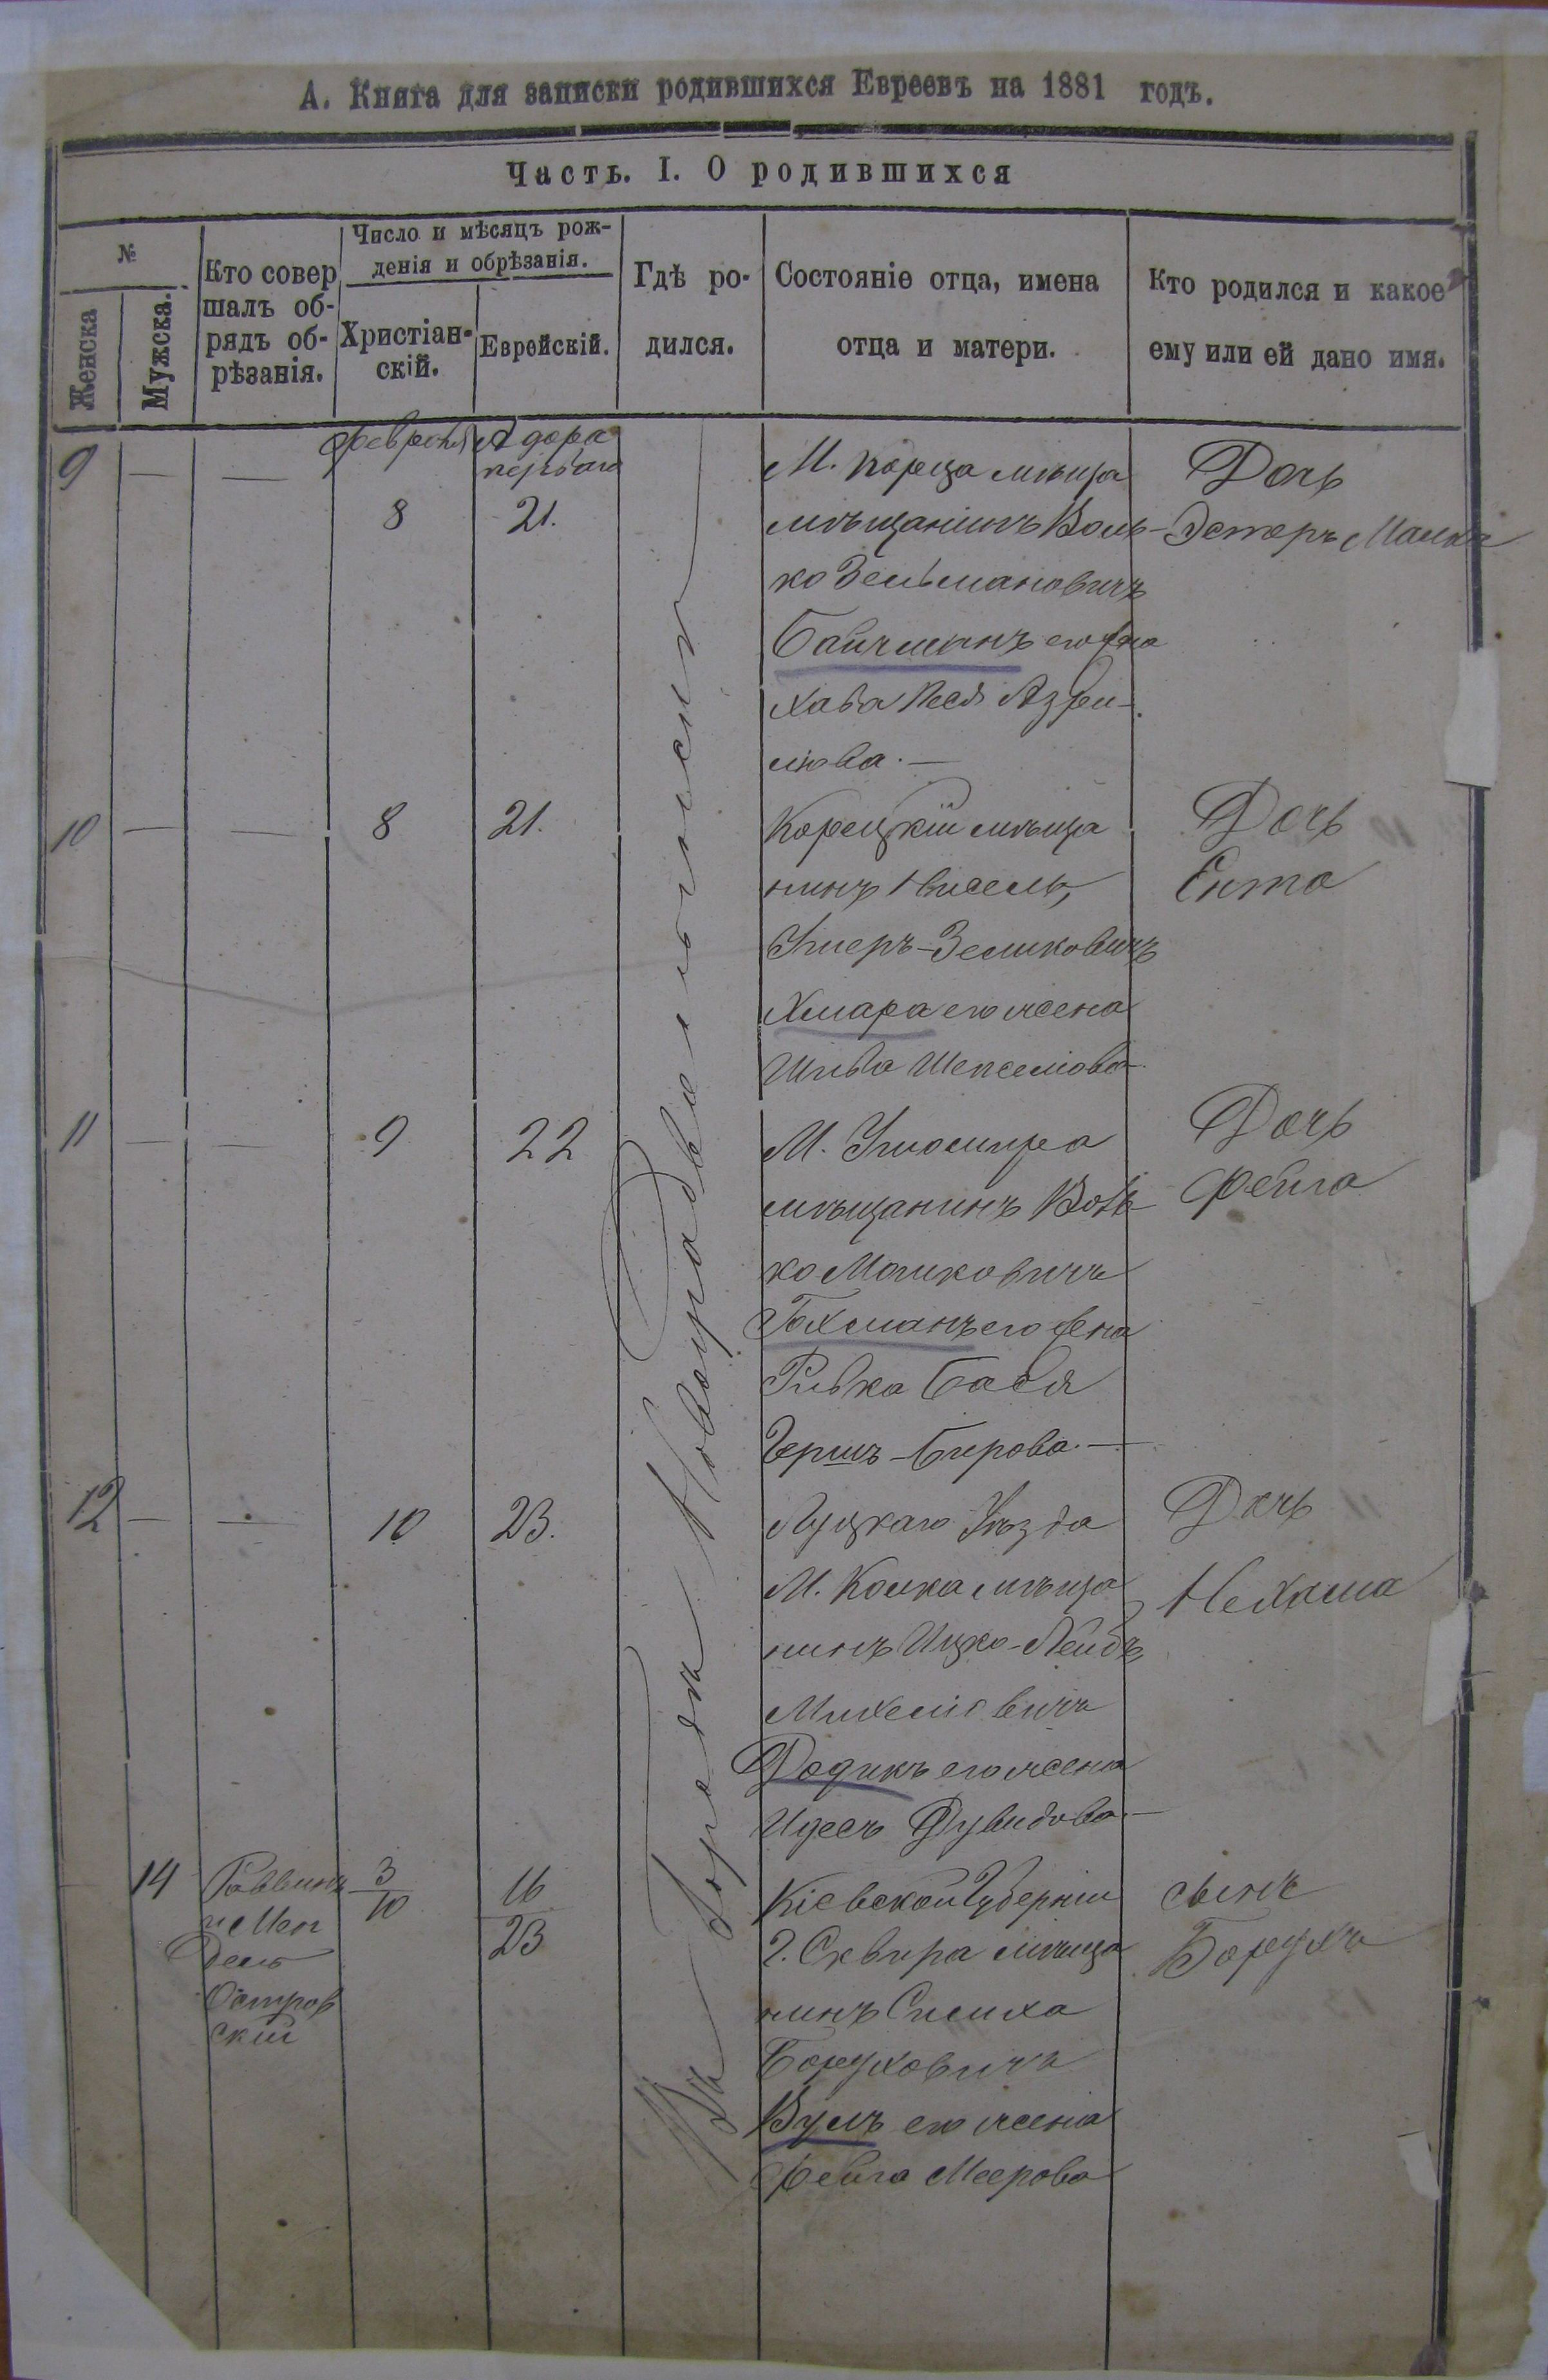 А. Книга для записки родившихся Евреевъ на 1881 годъ.
Часть. I. О родившихся
№
Женска
Мужска.
Кто совер
шалъ об-
рядъ об-
рѣзанія.
Число и мѣсяцъ рож-
денія и обрѣзанія.
Христіан-
скій.
Еврейскій.
Гдѣ ро-
дился.
Состояніе отца, имена
отца и матери.
Кто родился и какое
ему или ей дано имя.
Въ Городѣ Новоградволынскѣ
9 — —
Февраля
8
Адара
перваго
21.
М. Кореца мѣща
мѣщанинъ Воль-
ко Зельмановичъ
Байчманъ его жна
Хава Песя Азри-
лева. —
Дочь
Эстеръ Малка
10 — — 8 21.
Корецкій мѣща
нинъ Нисель,
Зельковичъ
Хмара его жена
Шива Шепселіова
Дочь
Ента
11 — — 9 22
М.
мѣщанинъ Воль
ко Мошковичъ
Гохманъ его жна
Ривка Бася
Гершъ-Берова. —
Дочь
Фейга
12 — — 10 23.
Луцкаго Уѣзда
М. Колка мѣща
нинъ Ицко-Лейбъ
Михелевичъ
Додикъ его жена
Идесъ Дувидова. —
Дочь
Нехама
14
Раввинъ
и Мен
дель
Остров
скій
3
10
16
23
Кіевской Губерніи
Г. Сквира мѣща
нинъ Симха
Боруховичъ
Вулъ его жена
Фейга Меерова
сынъ
Борухъ